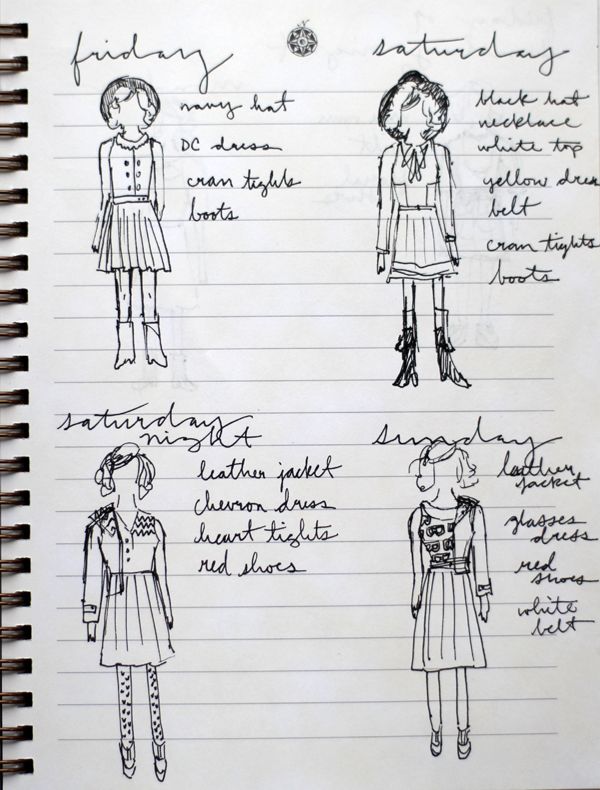 friday
navy hat
DC dress
cran tights
boots
saturday
black hat
necklace
white top
yellow dress
belt
cran tights
boots
saturday
night
leather jacket
chevron dress
heart tights
red shoes
sunday
leather
jacket
glasses
dress
red
shoes
white
belt